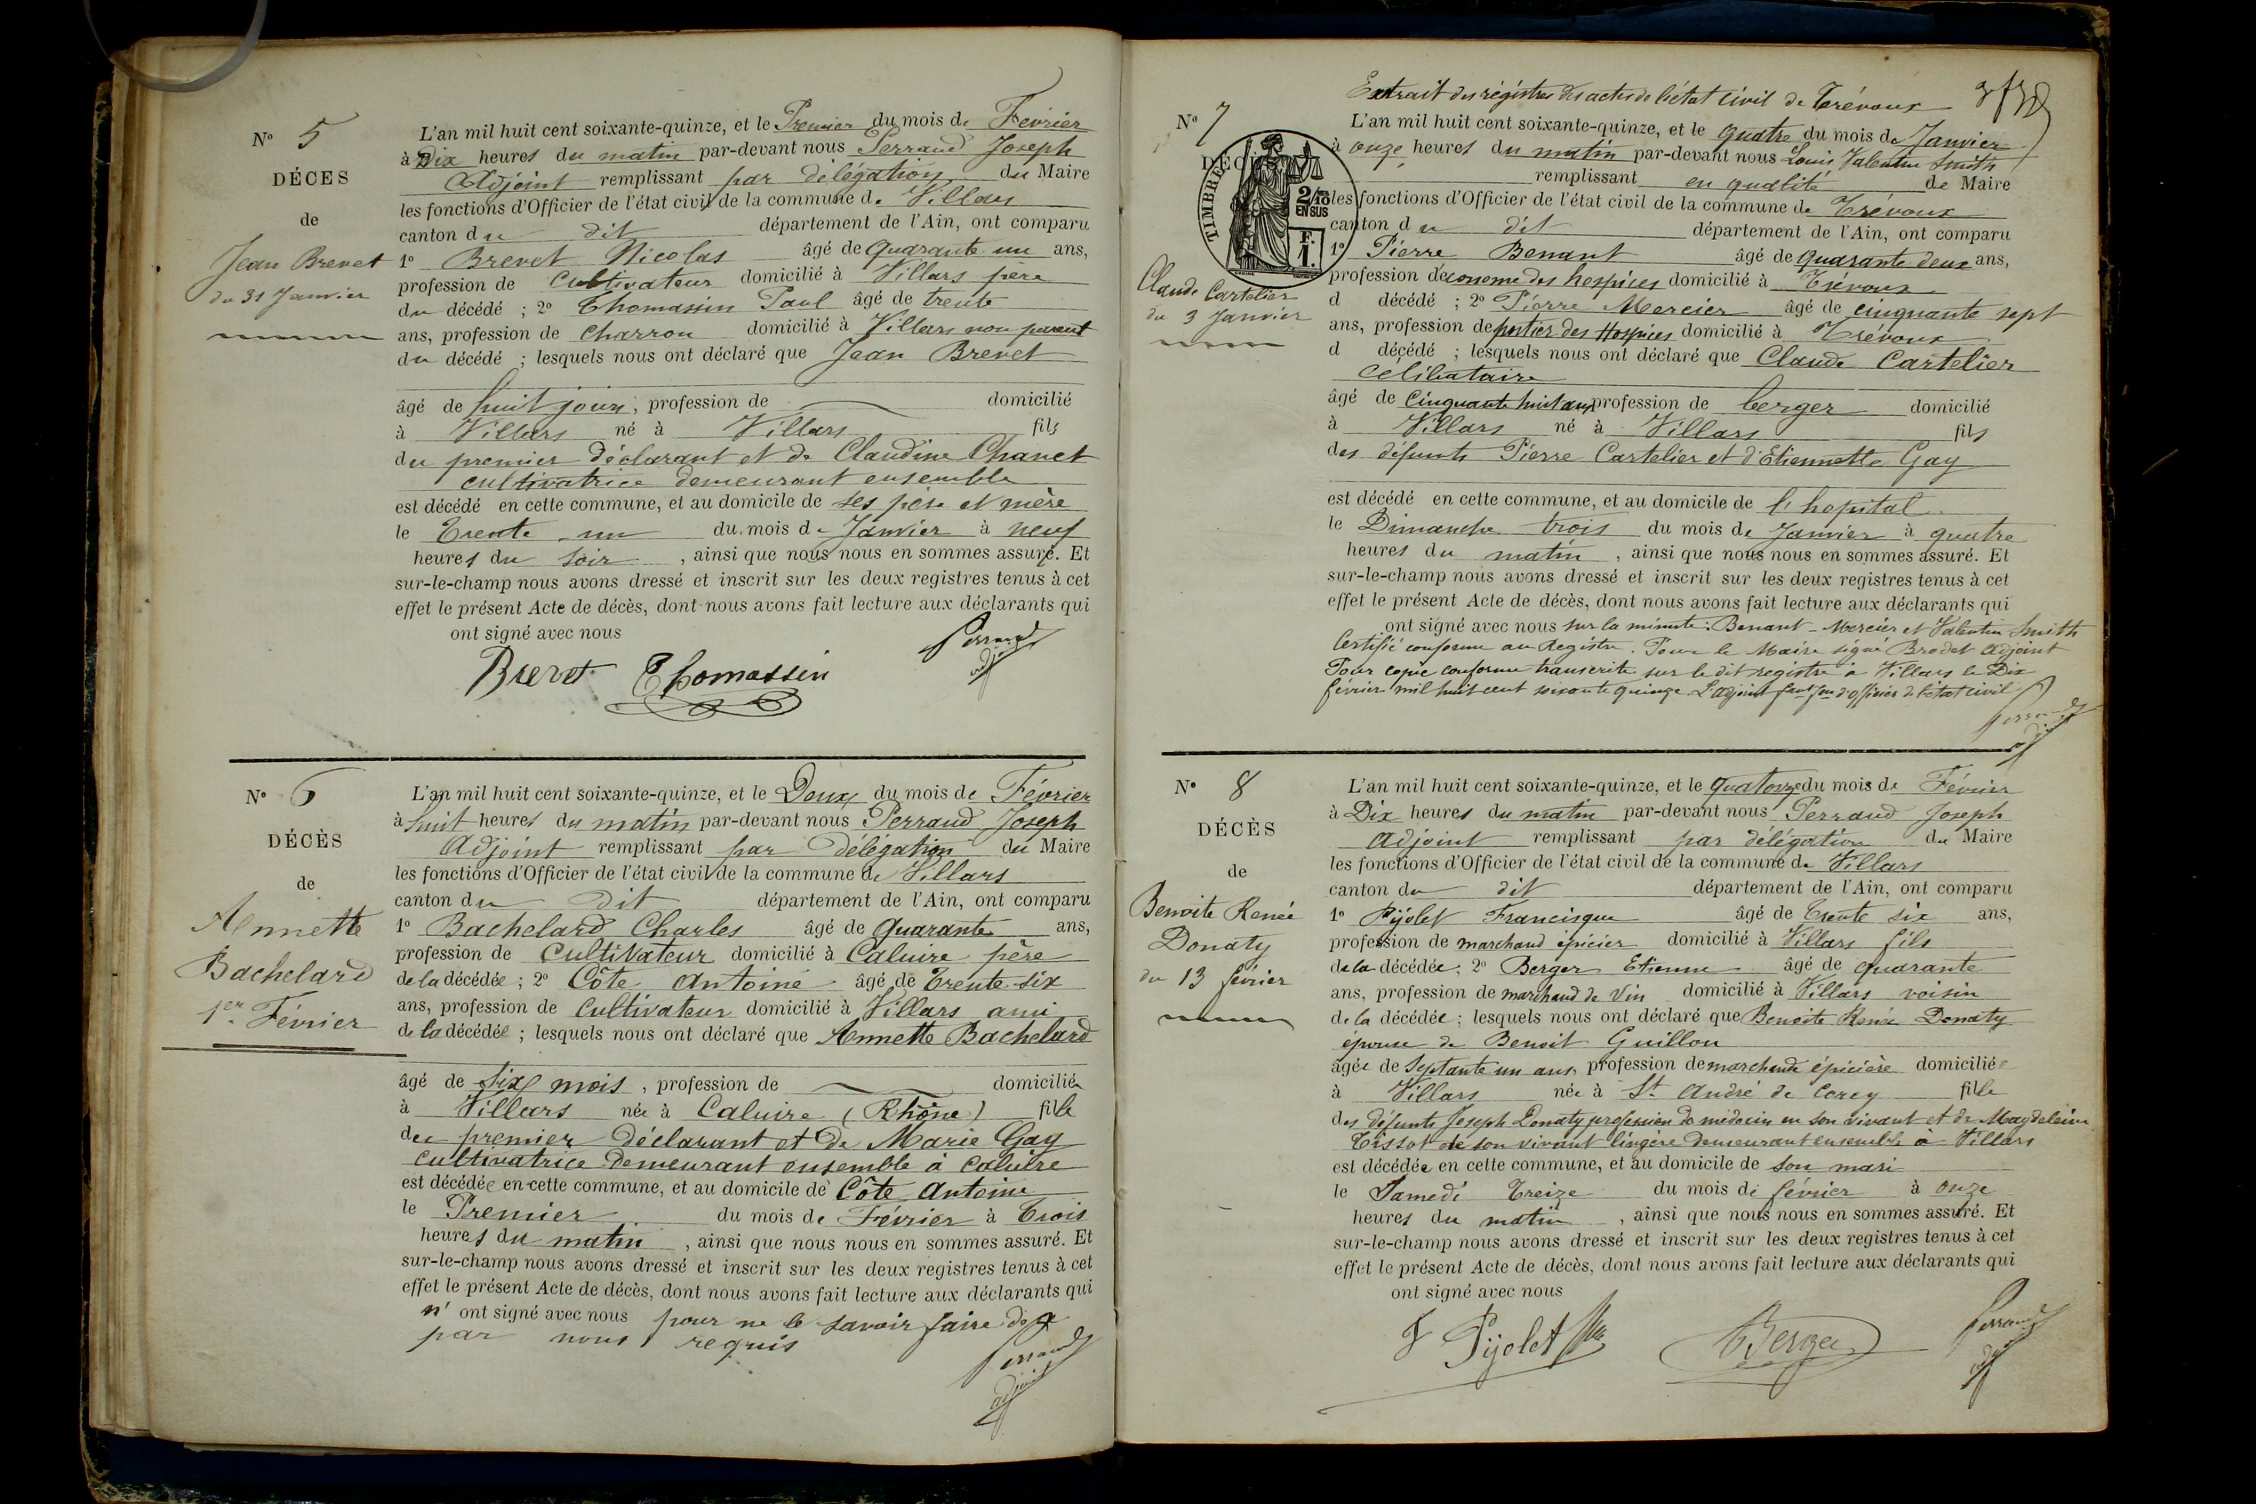 N° 5
DÉCES
de
Jean Brevet
du 31 Janvier
L'an mil huit cent soixante-quinze, et le Premier du mois de Février
à Dix heures du matin par-devant nous Perraud Joseph
Adjoint remplissant par délégation du Maire
les fonctions d'Officier de l'état civil de la commune de Villars
canton du dit département de l'Ain, ont comparu
1° Brevet Nicolas âgé de quarante un ans,
profession de Cultivateur domicilié à Villars père
du décédé ; 2° Thomassin Paul âgé de trente
ans, profession de charron domicilié à Villars non parent
du décédé ; lesquels nous ont déclaré que Jean Brevet
âgé de huit jours, profession de domicilié
à Villars né à Villars fils
du premier déclarant et de Claudine Chanet
cultivatrice demeurant ensemble
est décédé en cette commune, et au domicile de ses père et mère
le Trente un du mois de Janvier à neuf
heures du soir , ainsi que nous nous en sommes assuré. Et
sur-le-champ nous avons dressé et inscrit sur les deux registres tenus à cet
effet le présent Acte de décès, dont nous avons fait lecture aux déclarants qui
ont signé avec nous
Brevet Thomassin Perraud adj
N° 6
DÉCÈS
de
Annette
Bachelard
1er Février
L'an mil huit cent soixante-quinze, et le Deux du mois de Février
à huit heures du matin par-devant nous Perraud Joseph
Adjoint remplissant par Délégation du Maire
les fonctions d'Officier de l'état civil de la commune de Villars
canton du Dit département de l'Ain, ont comparu
1° Bachelard Charles âgé de Quarante ans,
profession de Cultivateur domicilié à Caluire père
de la décédée ; 2° Côte Antoine âgé de Trente six
ans, profession de Cultivateur domicilié à Villars ami
de la décédée ; lesquels nous ont déclaré que Annette Bachelard
âgé de six mois , profession de domiciliée
à Villars née à Caluire (Rhône) fille
du premier déclarant et de Marie Gay
cultivatrice demeurant ensemble à Caluire
est décédée en cette commune, et au domicile de Côte Antoine
le Premier du mois de Février à Trois
heures du matin , ainsi que nous nous en sommes assuré. Et
sur-le-champ nous avons dressé et inscrit sur les deux registres tenus à cet
effet le présent Acte de décès, dont nous avons fait lecture aux déclarants qui
n' ont signé avec nous pour ne le savoir faire de ce
par nous requis
Perraud adjoint
Extrait des régistres des actes de l'état civil de Trévoux
N° 7
DÉC
TIMBRE
2/10 EN SUS
F. 1.
Claude Cartelier
du 3 Janvier
L'an mil huit cent soixante-quinze, et le quatre du mois de Janvier
à onze heures du matin par-devant nous Louis Valentin Smith
remplissant en qualité de Maire
les fonctions d'Officier de l'état civil de la commune de Trévoux
canton du dit département de l'Ain, ont comparu
1° Pierre Benant âgé de quarante deux ans,
profession d'économe des hospices domicilié à Trévoux
d décédé ; 2° Pierre Mercier âgé de cinquante sept
ans, profession de portier des Hospices domicilié à Trévoux
d décédé ; lesquels nous ont déclaré que Claude Cartelier
célibataire
âgé de cinquante huit ans profession de berger domicilié
à Villars né à Villars fils
des défunts Pierre Cartelier et d'Etiennette Gay
est décédé en cette commune, et au domicile de l'hopital
le Dimanche trois du mois de Janvier à quatre
heures du matin , ainsi que nous nous en sommes assuré. Et
sur-le-champ nous avons dressé et inscrit sur les deux registres tenus à cet
effet le présent Acte de décès, dont nous avons fait lecture aux déclarants qui
ont signé avec nous sur la minute : Benant - Mercier et Valentin Smith
Certifié conforme au Registre. Pour le Maire signé Brodet adjoint
Pour copie conforme transcrite sur le dit registre à Villars le Dix
février mil huit cent soixante quinze L'adjoint d'officier de l'état civil
Perraud adj
N° 8
DÉCÈS
de
Benoite Renée
Donaty
du 13 février
L'an mil huit cent soixante-quinze, et le quatorze du mois de Février
à Dix heures du matin par-devant nous Perraud Joseph
Adjoint remplissant par délégation du Maire
les fonctions d'Officier de l'état civil de la commune de Villars
canton du dit département de l'Ain, ont comparu
1° Pijolet Francisque âgé de Trente six ans,
profession de marchand épicier domicilié à Villars fils
de la décédée; 2° Berger Etienne âgé de quarante
ans, profession de marchand de Vin domicilié à Villars voisin
de la décédée; lesquels nous ont déclaré que Benoite Renée Donaty
épouse de Benoit Guillon
âgée de Septante un ans, profession de marchande épicière domiciliée
à Villars née à St André de Corcy fille
des défunts Joseph Donaty profession de médecin en son vivant et de Magdeleine
Tissot de son vivant lingère demeurant ensemble à Villars
est décédée en cette commune, et au domicile de son mari
le Samedi Treize du mois de février à onze
heures du matin , ainsi que nous nous en sommes assuré. Et
sur-le-champ nous avons dressé et inscrit sur les deux registres tenus à cet
effet le présent Acte de décès, dont nous avons fait lecture aux déclarants qui
ont signé avec nous
F Pijolet Berger Perraud adj